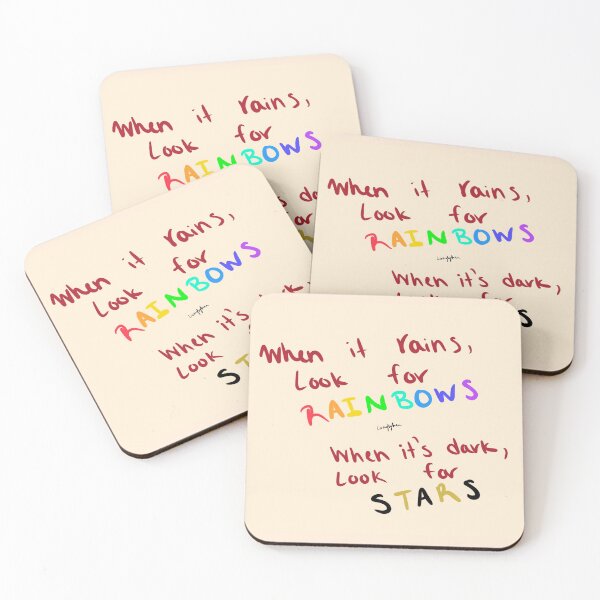 When it rains,
Look for
RAINBOWS
When it rains,
Look for
RAINBOWS
When it's dark,
When it rains,
Look for
RAINBOWS
When it's
Look
When it rains,
Look for
RAINBOWS
When it's dark,
Look for
STARS